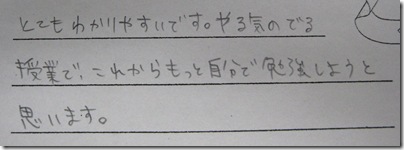 とてもわかりやすいです。やる気のでる
授業で、これからもっと自分で勉強しようと
思います。